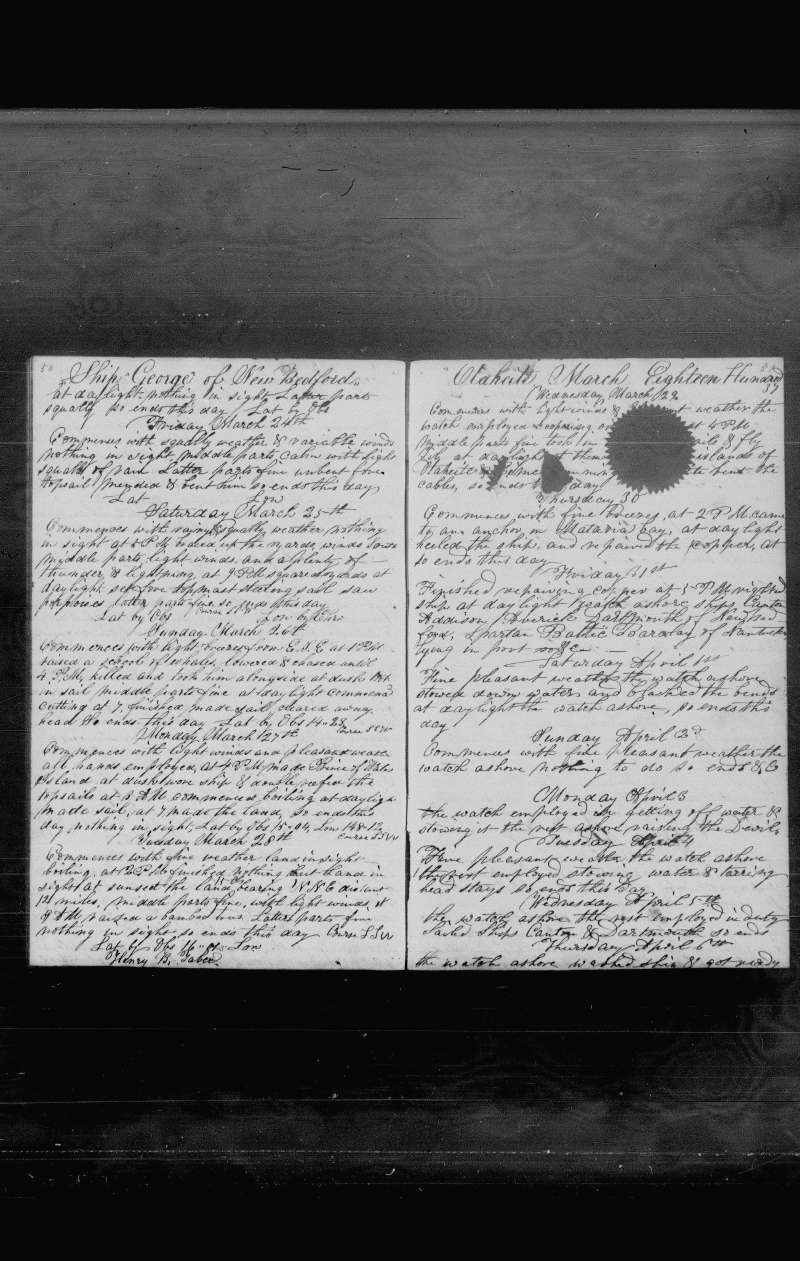 50
Ship George of New Bedford
at daylight nothing in sight Latter parts
squally so ends this day Lat by Obs
Friday March 24th
Commences with squally weather & variable winds
nothing in sight middle parts calm with light
squalls of rain Latter parts fine unbent fore
topsail mended & bent him so ends this day
Lat Lon
Saturday March 25th
Commences with rainy & squally weather nothing
in sight at 5 PM braced up the yards, winds
middle parts light winds, and a plenty of
thunder, & lightning, at 9 PM squared yards at
daylight set fore topmast steering sail saw
porpoises latter parts fine so ends this day
Lat by Obs Lon by
Sunday March 26th
Commences with light breezes from E.S.E at 1 PM
raised a school of whales, lowered & chased until
4 P.M, killed and took him alongside at dusk took
in sail middle parts fine at daylight commenced
cutting at 7, finished made sail, cleared away
head So ends this day Lat by Obs 14-28
Monday March 27th Course
Commences with light winds and pleasant weather
all hands employed, at 4 PM, made Prince of Wales
Island at dusk wore ship & double reefed the
topsails at 3 AM commenced boiling at daylight
made sail, at 7 made the land, so ends this
day nothing in sight, Lat by Obs 15-04, Lon 148-12
Tuesday March 28th Course SSW
Commences with fine weather land in sight
boiling, at 12 PM finished nothing but land in
sight at sunset the land bearing distant
12 miles, middle parts fine, with light winds, at
8 AM, raised a Latter parts fine
nothing in sight so ends this day Course SSW
Lat by Obs 16 Lon
Henry B. Taber
Otaheite March Eighteen Hundred
37
Wednesday March 29
Commences with light winds & weather the
watch employed at 4 PM
middle parts fine took in sails &
at daylight islands of
Otaheite & bent the
cables, so ends day
Thursday 30
Commences with fine breezes, at 2 PM came
to an anchor in Matavia bay, at daylight
heeled the ship, and repaired the copper, at
so ends this day
Friday 31st
Finished repairing copper at 5 PM righted
ship at daylight watch ashore ships Canton
Addison, Averick Dartmouth of New Bed-
ford, Spartan Baltic Faraday of Nantucket
lying in port so &c
Saturday April 1st
Fine pleasant weather the watch ashore
stowed down water and washed the bends
at daylight the watch ashore, so ends this
day
Sunday April 2d
Commences with fine pleasant weather the
watch ashore nothing to do so ends &c
Monday April 3
the watch employed in getting off water &
stowing it the rest ashore raising the Devil
Tuesday April 4
Fine pleasant weather the watch ashore
the rest employed stowing water & tarring
head stays so ends this day
Wednesday April 5th
the watch ashore the rest employed in duty
Sailed Ships Canton & Dartmouth so ends
Thursday April 6th
the watch ashore washed ship & got ready